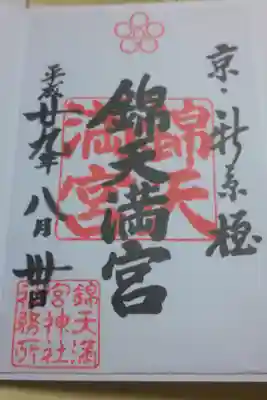 京・新京極
錦天満宮
錦天
満宮
平成廿九年八月卅日
錦天満
宮神社
務所